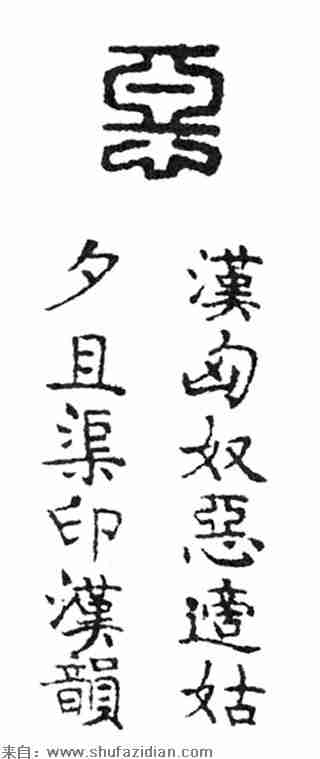 惡
漢匈奴惡適姑
夕且渠印漢韻
来自：www.shufazidian.com